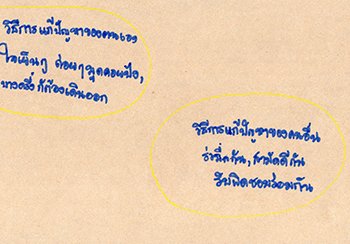 วิธีการแก้ปัญหาของตนเอง
ใจเย็นๆ ค่อยๆพูดค่อยๆ
บางครั้งก็ต้องเดินออก
วิธีการแก้ปัญหาของคนอื่น
สามัคคีกัน
รับผิดชอบร่วมกัน